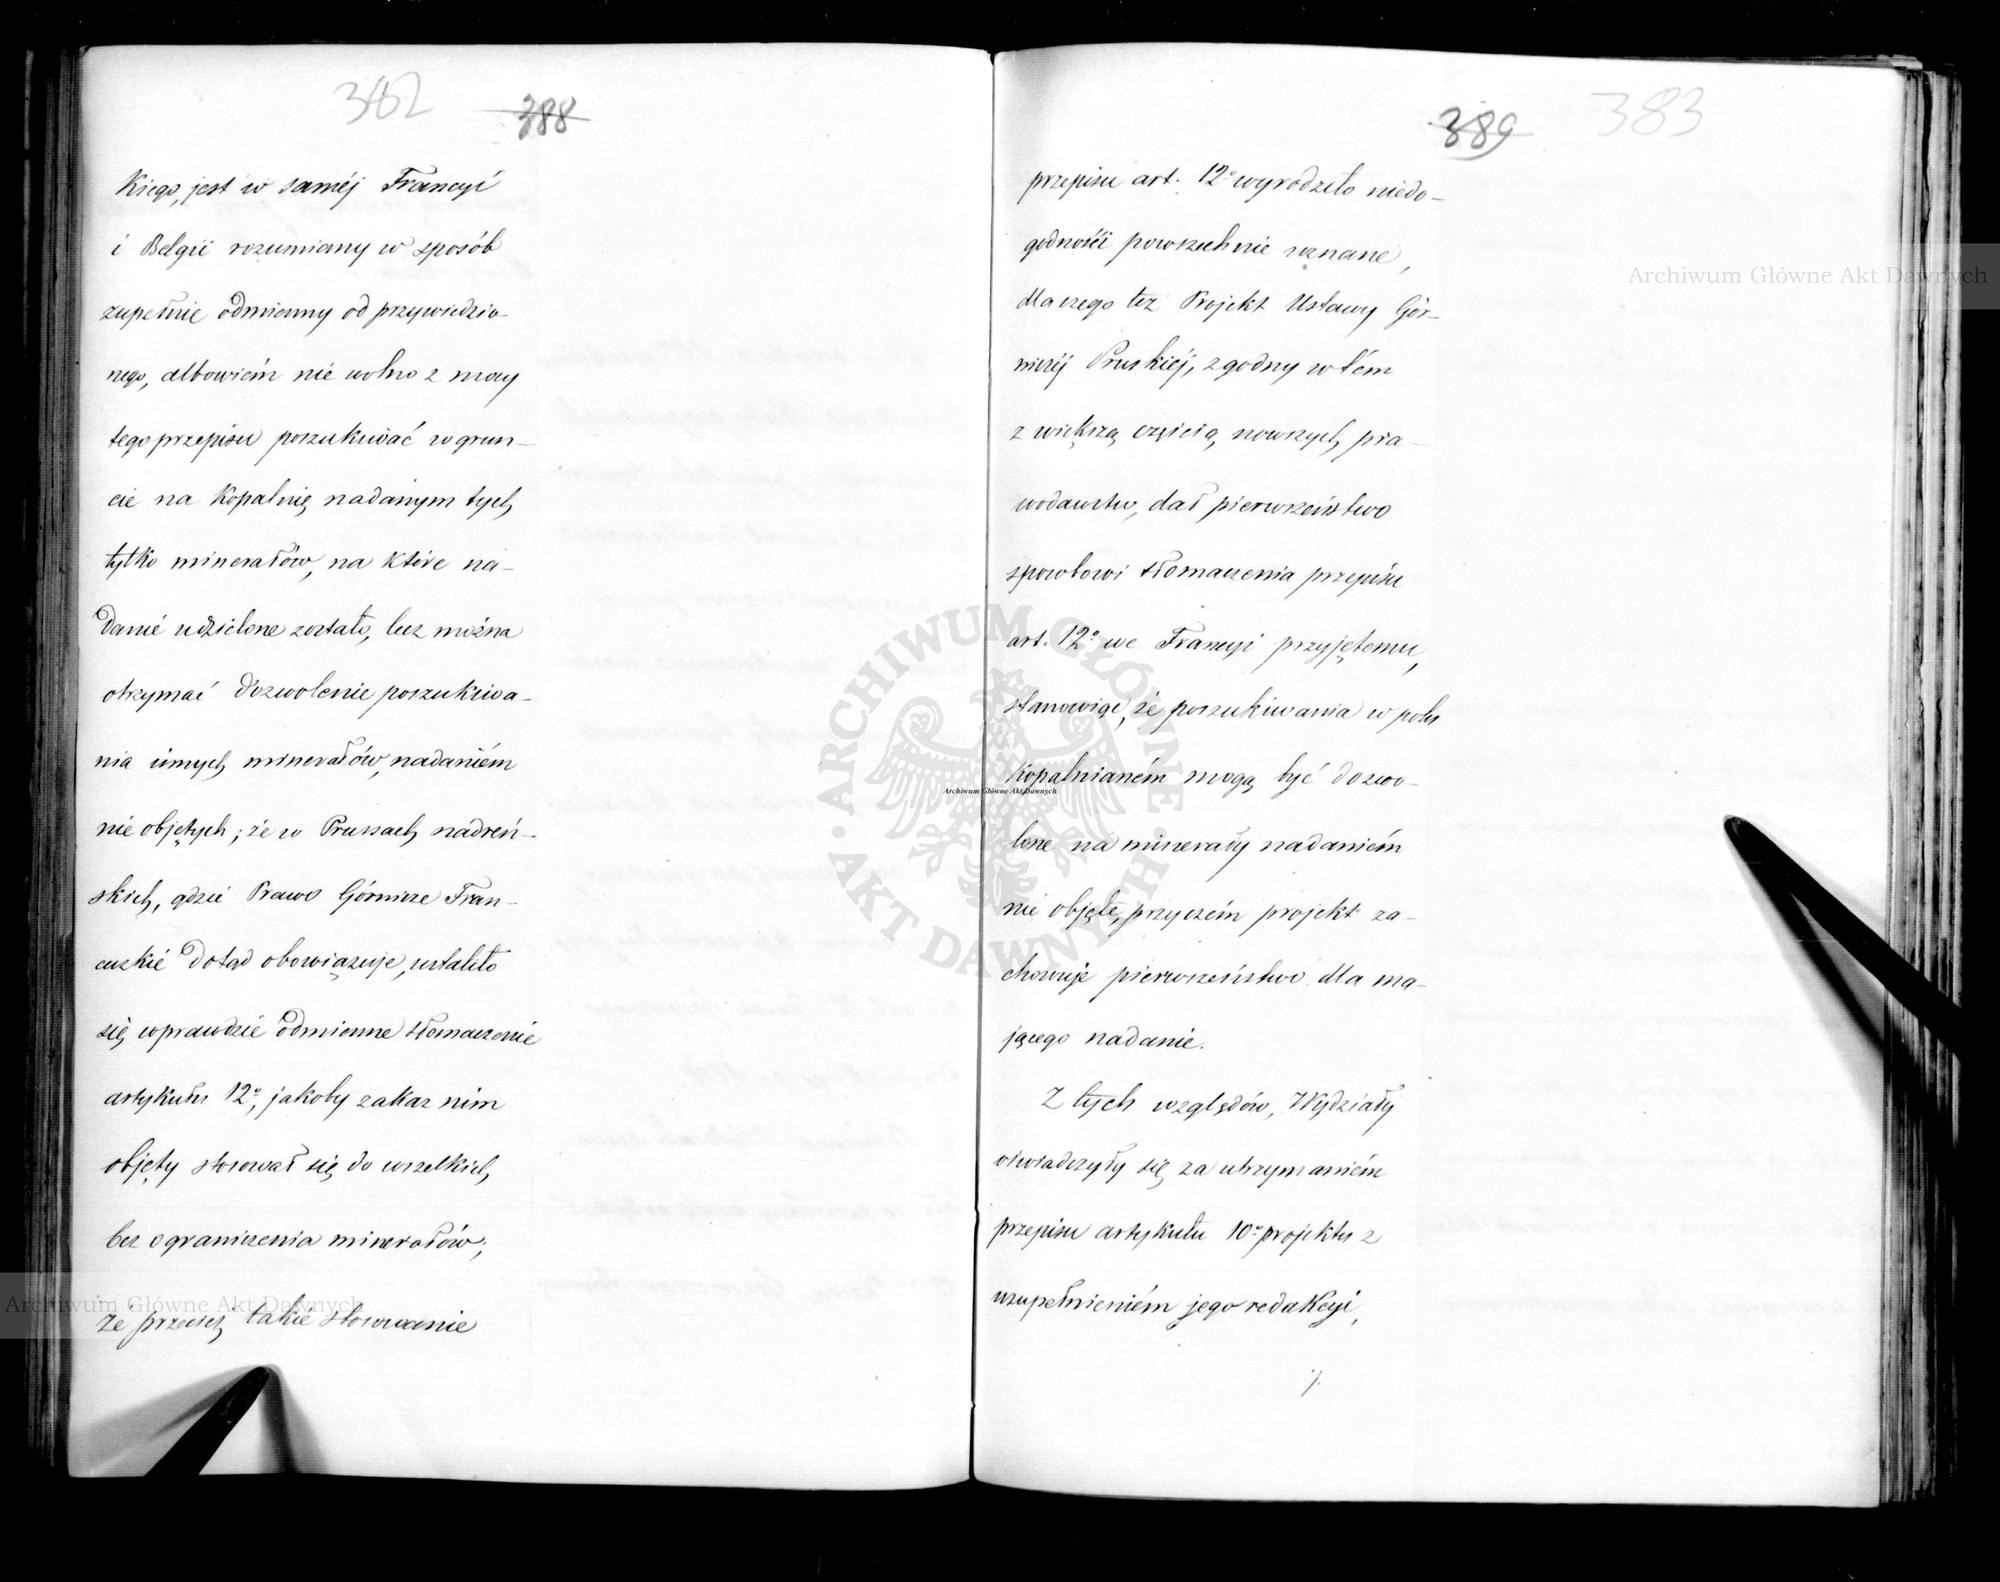 382 388
kiego, jest w saméj Francyi
i Belgii rozumiany w sposób
zupełnie odmienny od przywiedzio-
nego, albowiem nie wolno z mocy
tego przepisu poszukiwać w grun-
cie na kopalnię nadanym tych
tylko minerałów, na które na-
danie udzielone zostało, lecz można
otrzymać dozwolenie poszukiwa-
nia innych minerałów, nadaniem
nie objętych; że w Prusach nadreń-
skich, gdzie Prawo Górnicze Fran-
cuzkie dotąd obowiązuje, ustaliło
się wprawdzie odmienne tłomaczenie
artykułu 12º, jakoby zakaz nim
objęty stosował się do wszelkich
bez ograniczenia minerałów;
że przecież takie stosowanie
389 383
przepisu art. 12º wyrodziło niedo-
godności powszechnie uznane,
dla czego też Projekt Ustawy Gór-
niczéj Pruskiéj, zgodny w tém
z większą częścią nowszych pra-
wodawstw, dał pierwszeństwo
sposobowi tłomaczenia przepisu
art. 12º we Francyi przyjętemu,
stanowiąc, że poszukiwania w polu
kopalnianém mogą być dozwo-
lone na minerały nadaniem
nie objęte, przyczém projekt za-
chowuje pierwszeństwo dla ma-
jącego nadanie.
Z tych względów, Wydziały
oświadczyły się za utrzymaniem
przepisu artykułu 10º projektu z
uzupełnieniem jego redakcyi,
Archiwum Główne Akt Dawnych
Archiwum Główne Akt Dawnych
Archiwum Główne Akt Dawnych
ARCHIWUM GŁÓWNE AKT DAWNYCH